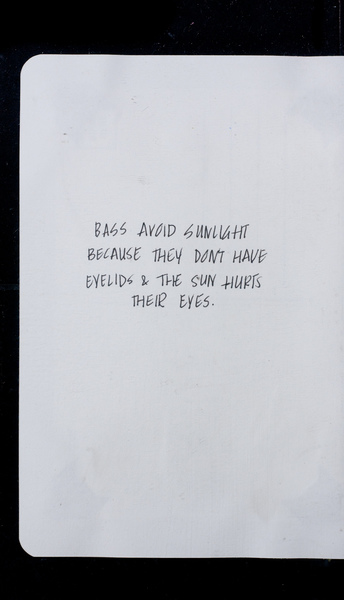 BASS AVOID SUNLIGHT
BECAUSE THEY DON'T HAVE
EYELIDS & THE SUN HURTS
THEIR EYES.